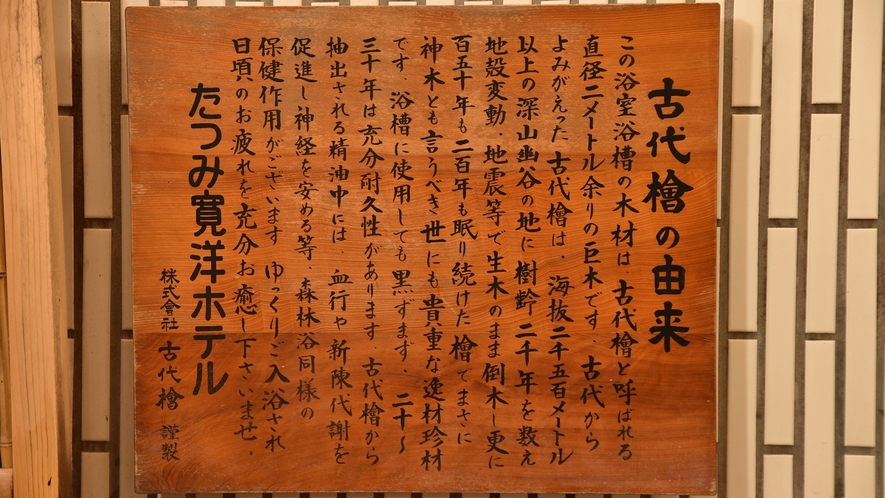 古代檜の由来
この浴室浴槽の木材は古代檜と呼ばれる
直径二メートル余りの巨木です．古代から
よみがえった古代檜は、海抜二千五百メートル
以上の深山幽谷の地に樹齢二千年を数え
地殻変動．地震等で生木のまま倒木し更に
百五十年も二百年も眠り続けた檜でまさに
神木とも言うべき世にも貴重な逸材珍材
です．浴槽に使用しても黒ずまず．二十〜
三十年は充分耐久性があります 古代檜から
抽出される精油中には、血行や新陳代謝を
促進し神経を安める等．森林浴同様の
保健作用がございます ゆっくりご入浴され
日頃のお疲れを充分お癒し下さいませ．
たつみ寛洋ホテル
株式會社 古代檜 謹製